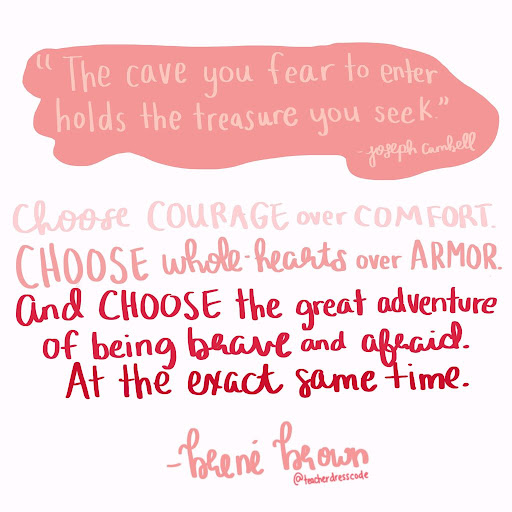 “The cave you fear to enter
holds the treasure you seek.”
-joseph cambell
Choose COURAGE over COMFORT.
CHOOSE whole-hearts over ARMOR.
and CHOOSE the great adventure
of being brave and afraid.
At the exact same time.
-brené brown
@teacherdresscode